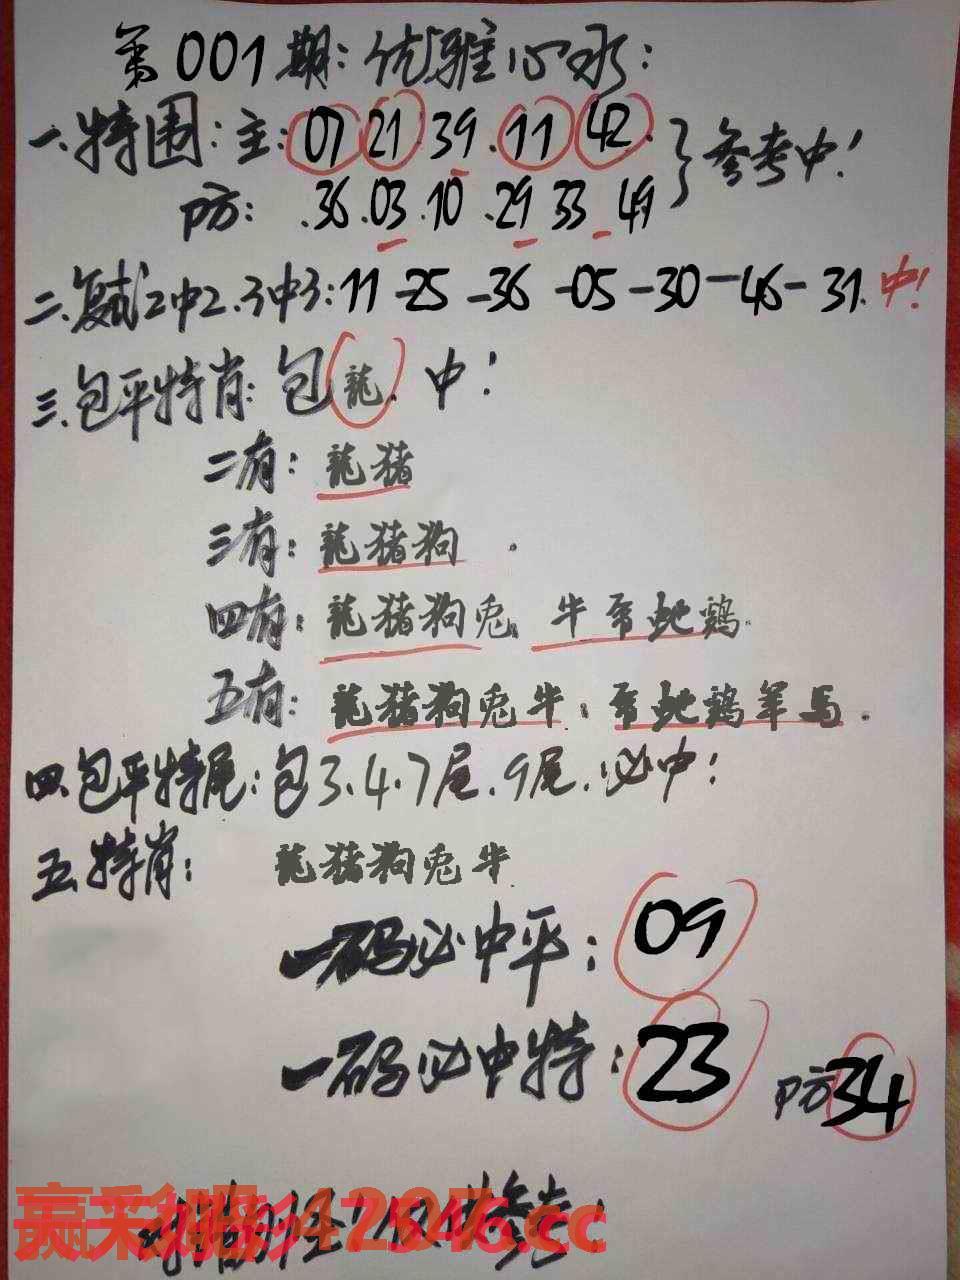 第001期:优雅心水:
一.特围:主:07 21 39.11 42.
参考中!
防:.36.03.10.29 33 49
二.复试2中2.3中3:11-25-36-05-30-46-31.中!
三.包平特肖:包龍.中!
二有:龍猪
三有:龍猪狗.
四有:龍猪狗兎 牛帝蛇鶏.
五有:龍猪狗兎牛:帝蛇鶏羊马.
四.包平特尾:包3.4.7尾.9尾.必中!
五.特肖:龍猪狗兎牛
一码必中平:09
一码必中特:23 防34